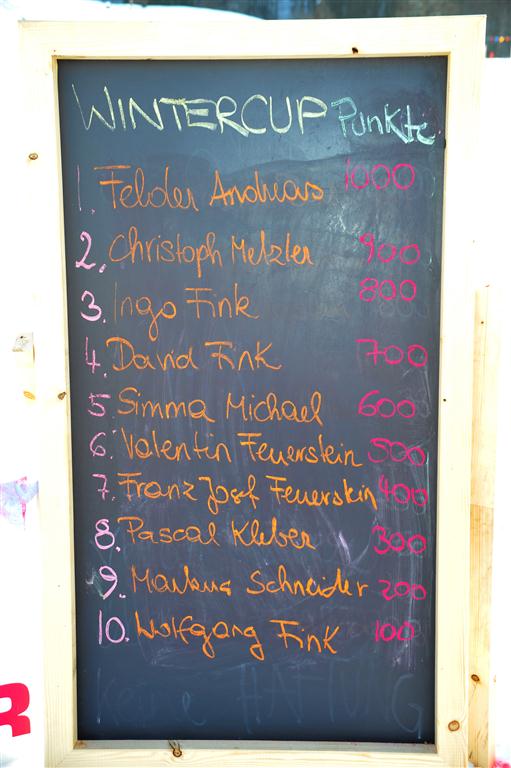 WINTERCUP Punkte
1. Felder Andreas 1000
2. Christoph Metzler 900
3. Ingo Fink 800
4. David Fink 700
5. Simma Michael 600
6. Valentin Feuerstein 500
7. Franz Josef Feuerstein 400
8. Pascal Kleber 300
9. Markus Schneider 200
10. Wolfgang Fink 100
Keine HAFTUNG
R